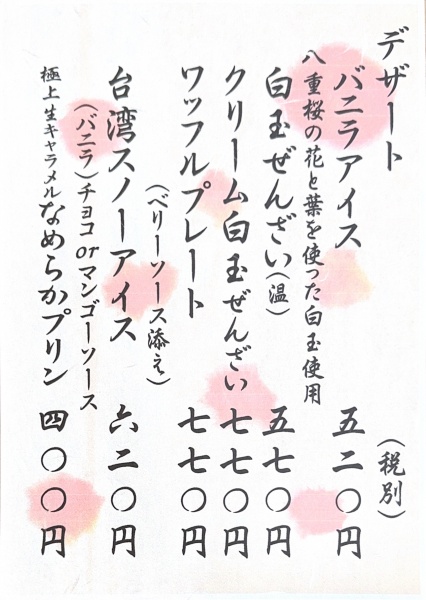 デザート
（税別）
バニラアイス 五二〇円
八重桜の花と葉を使った白玉使用
白玉ぜんざい（温） 五七〇円
クリーム白玉ぜんざい 七七〇円
ワッフルプレート 七七〇円
（ベリーソース添え）
台湾スノーアイス 六二〇円
（バニラ）チョコorマンゴーソース
極上生キャラメルなめらかプリン 四〇〇円